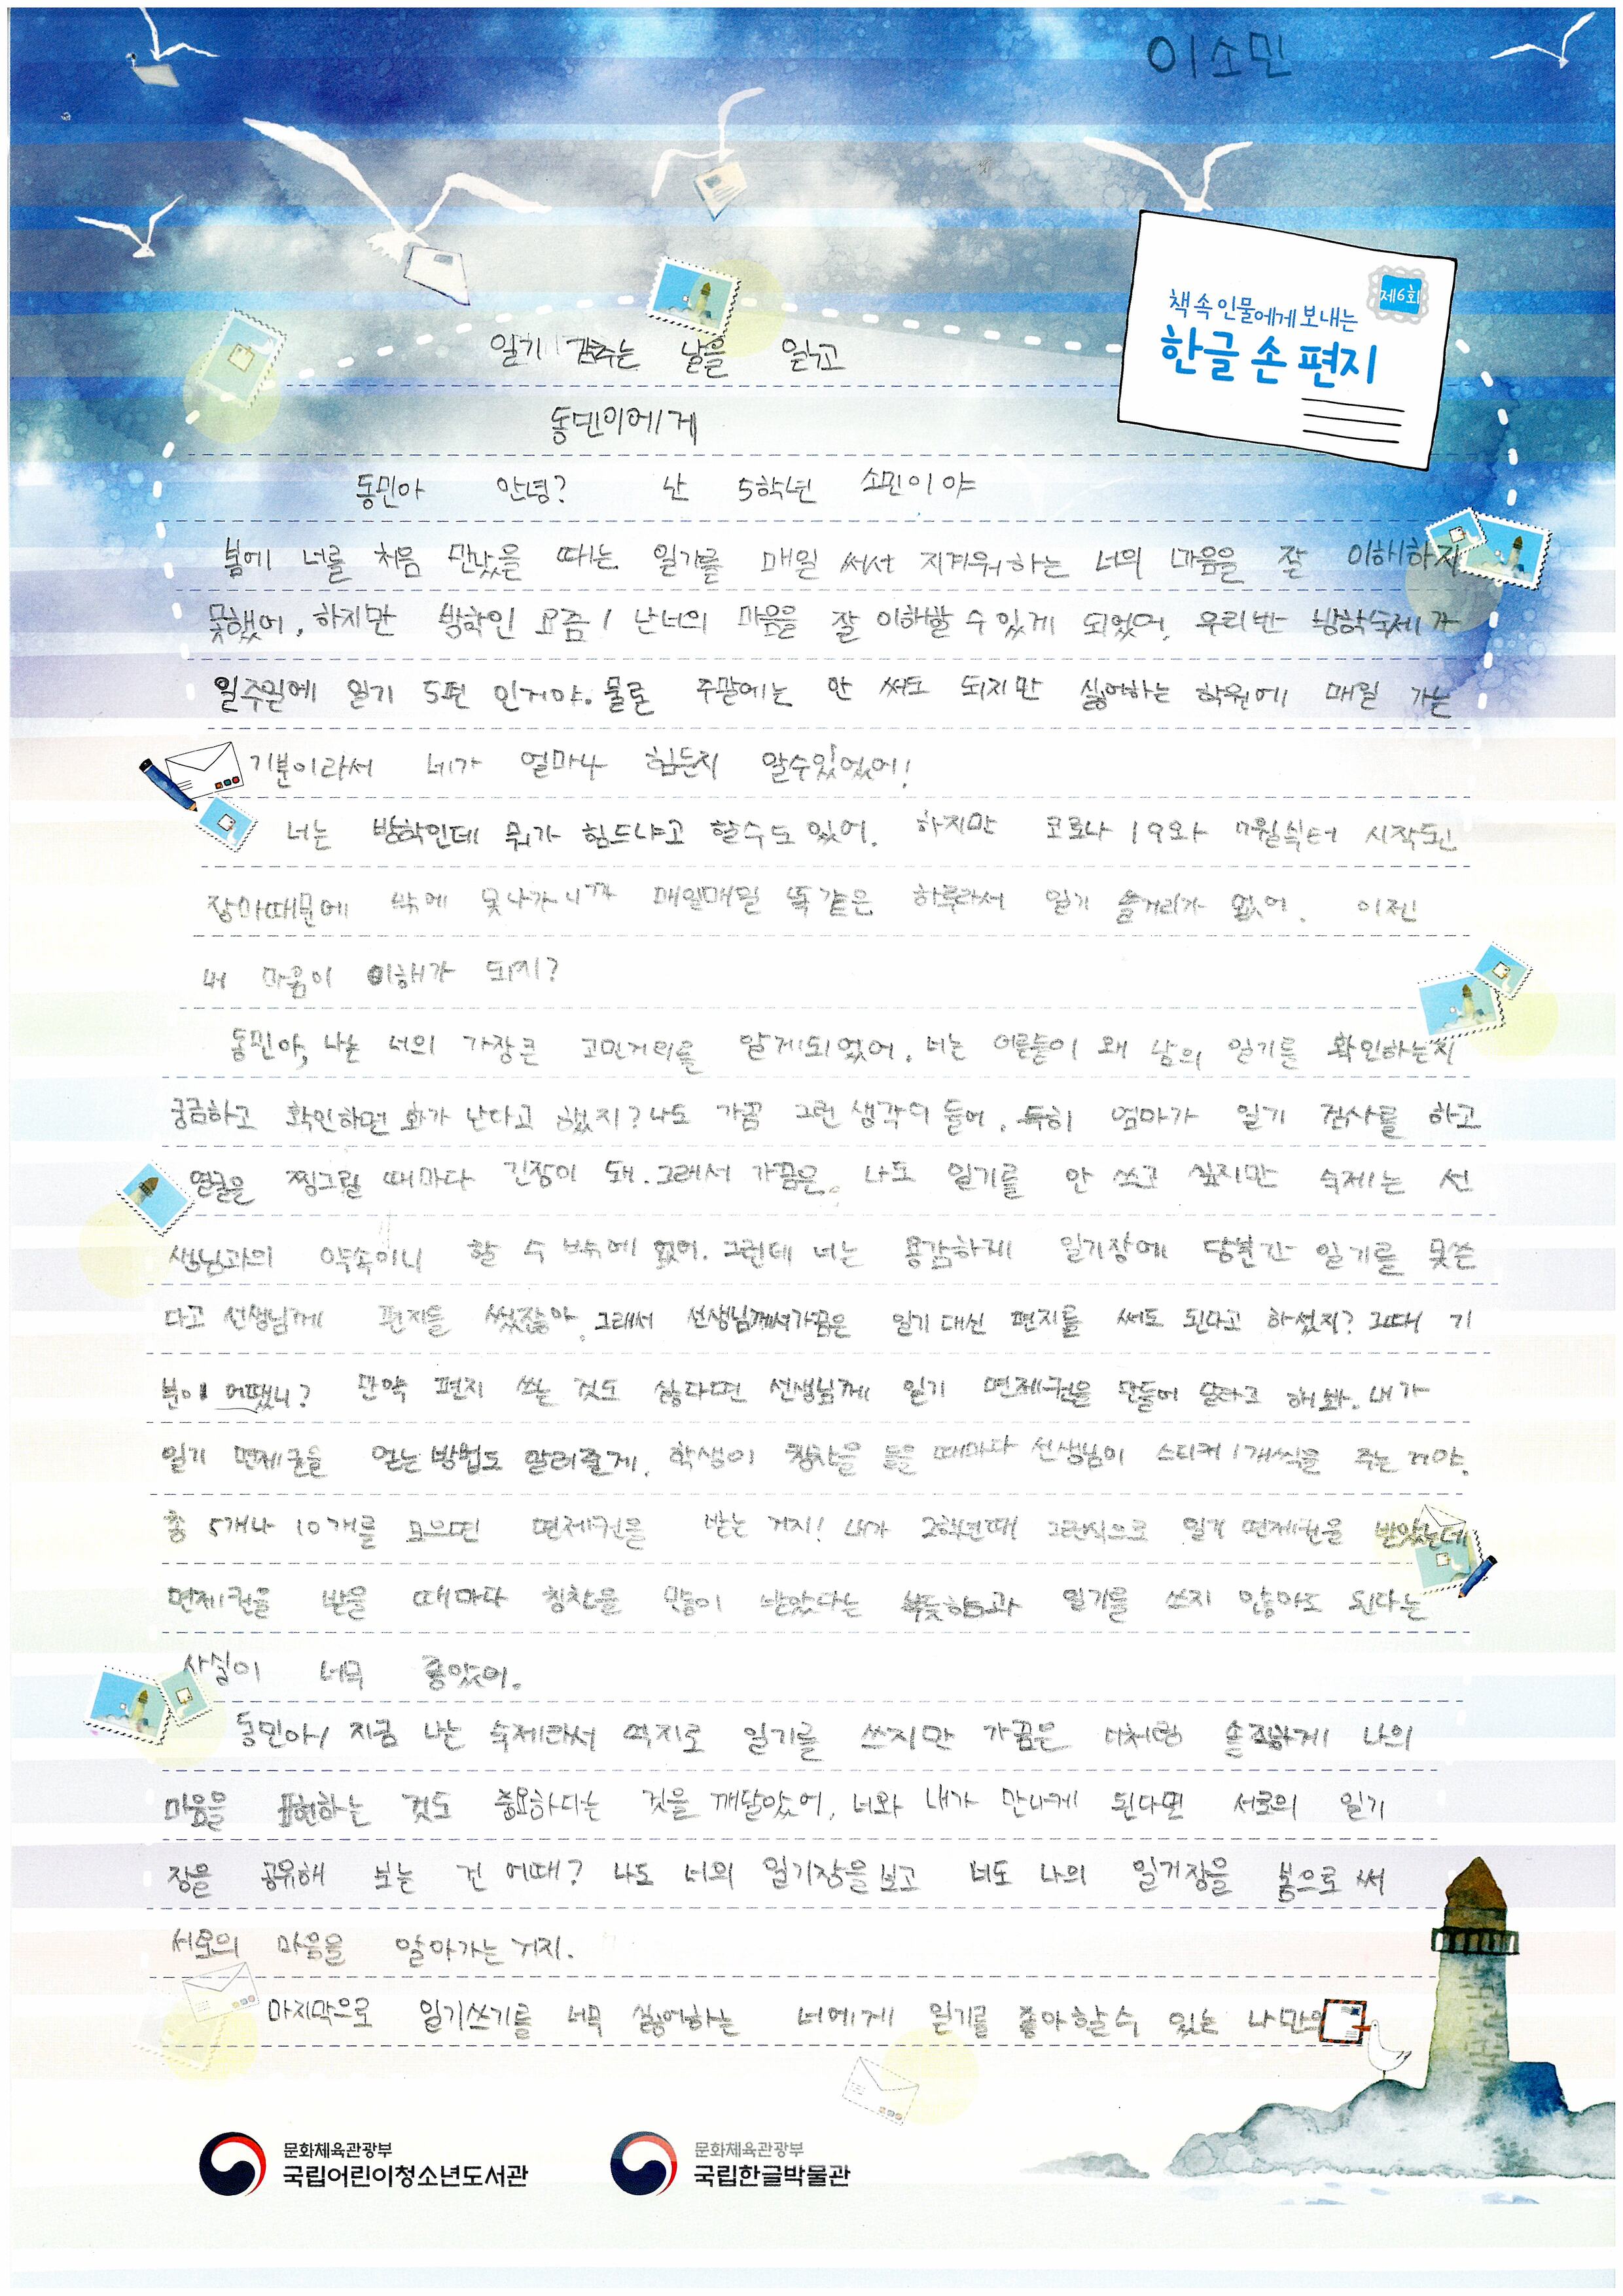 이소민
제6회
책 속 인물에게 보내는
한글 손 편지
일기 감추는 날을 읽고
동민이에게
동민아 안녕? 난 5학년 소민이야
봄에 너를 처음 만났을 때는 일기를 매일 써서 지겨워하는 너의 마음을 잘 이해하지
못했어. 하지만 방학인 요즘, 난 너의 마음을 잘 이해할 수 있게 되었어. 우리반 방학숙제가
일주일에 일기 5편 인거야. 물론 주말에는 안 써도 되지만 싫어하는 학원에 매일 가는
기분이라서 네가 얼마나 힘든지 알수있었어!
너는 방학인데 뭐가 힘드냐고 할수도 있어. 하지만 코로나 19와 7월부터 시작된
장마때문에 밖에 못나가니까 매일매일 똑같은 하루라서 일기 쓸거리가 없어. 이젠
내 마음이 이해가 되지?
동민아, 나는 너의 가장큰 고민거리를 알게되었어. 너는 어른들이 왜 남의 일기를 확인하는지
궁금하고 확인하면 화가 난다고 했지? 나도 가끔 그런 생각이 들어. 특히 엄마가 일기 검사를 하고
얼굴을 찡그릴 때마다 긴장이 돼. 그래서 가끔은 나도 일기를 안 쓰고 싶지만 숙제는 선
생님과의 약속이니 할 수 밖에 없어. 그런데 너는 용감하게 일기장에 당분간 일기를 못쓴
다고 선생님께 편지를 썼잖아. 그래서 선생님께서가끔은 일기 대신 편지를 써도 된다고 하셨지? 그때 기
분이 어땠니? 만약 편지 쓰는 것도 싫다면 선생님께 일기 면제권을 만들어 달라고 해봐. 내가
일기 면제권을 얻는 방법도 알려줄게. 학생이 칭찬을 들을 때마다 선생님이 스티커 1개씩을 주는 거야.
총 5개나 10개를 모으면 면제권을 받는 거지! 내가 2학년때 그런식으로 일기 면제권을 받았는데
면제권을 받을 때마다 칭찬을 많이 받았다는 뿌듯함과 일기를 쓰지 않아도 된다는
사실이 너무 좋았어.
동민아, 지금 나는 숙제라서 억지로 일기를 쓰지만 가끔은 너처럼 솔직하게 나의
마음을 표현하는 것도 중요하다는 것을 깨달았어. 너와 내가 만나게 된다면 서로의 일기
장을 공유해 보는 건 어때? 나도 너의 일기장을 보고 너도 나의 일기장을 봄으로 써
서로의 마음을 알아가는 거지.
마지막으로 일기쓰기를 너무 싫어하는 너에게 일기를 좋아할수 있는 나만의
문화체육관광부
국립어린이청소년도서관
문화체육관광부
국립한글박물관